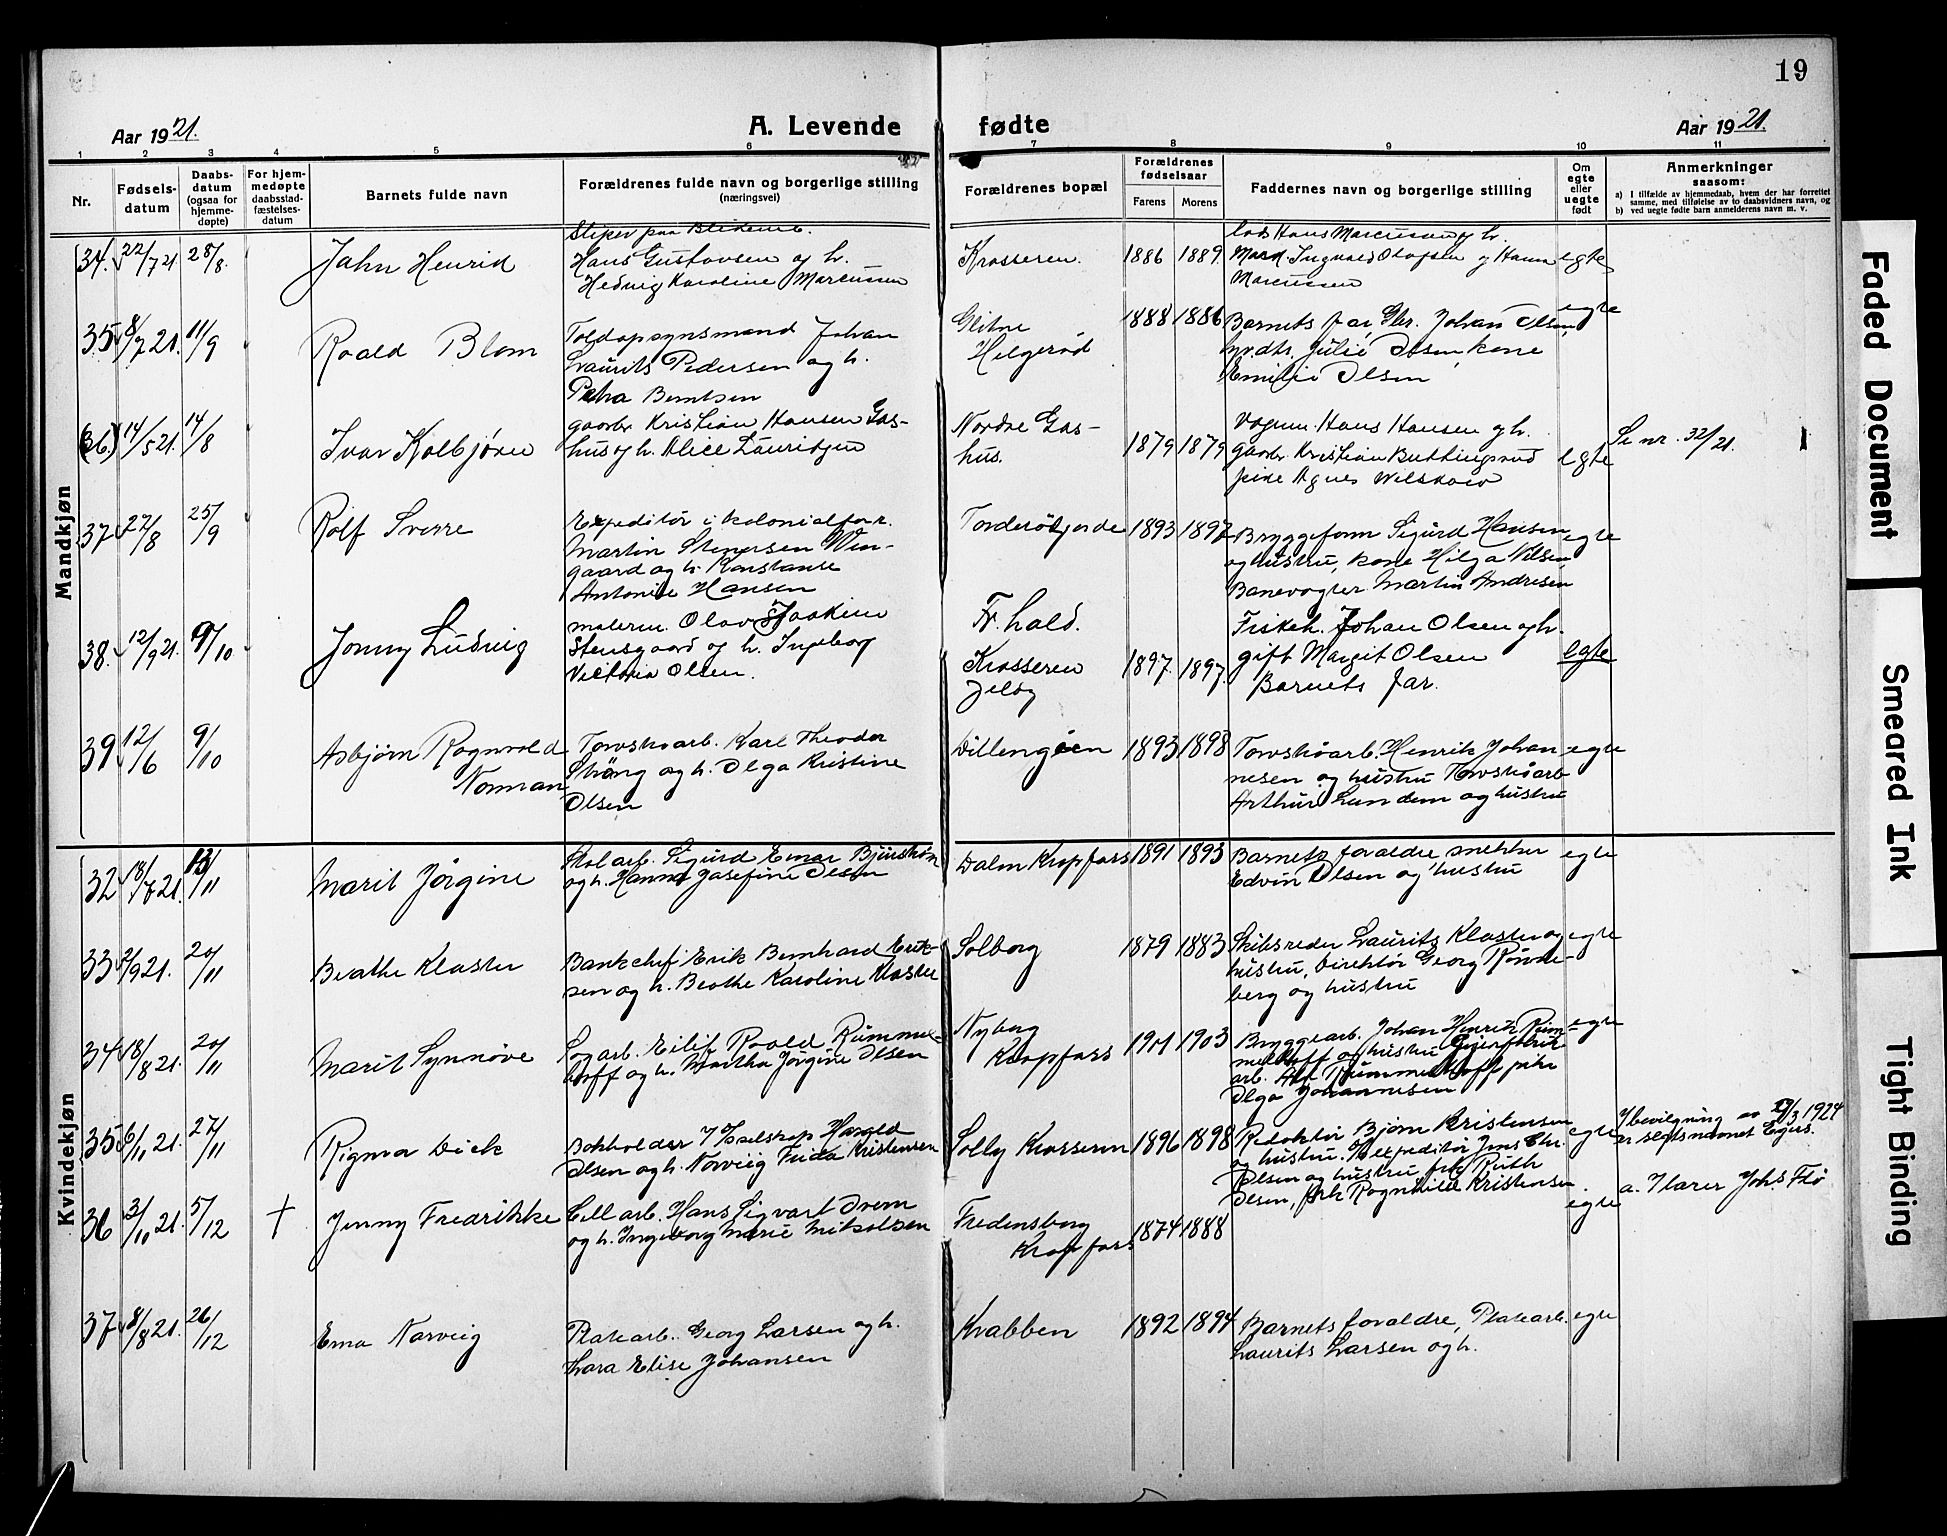 19
Aar 1921.
A. Levende
fødte
Aar 1921.
1 2 3 4 5 6 7 8 9 10 11
Nr.
Fødsels-
datum
Daabs-
datum
(ogsaa for
hjemme-
døpte)
For hjem-
medøpte
daabsstad-
fæstelses-
datum
Barnets fulde navn
Forældrenes fulde navn og borgerlige stilling
(næringsvei)
Forældrenes bopæl
Forældrenes
fødselsaar
Farens
Morens
Faddernes navn og borgerlige stilling
Om
egte
eller
uegte
født
Anmerkninger
saasom:
a) I tilfælde av hjemmedaab, hvem der har forrettet
samme, med tilføielse av to daabsvidners navn, og
b) ved uegte fødte barn anmelderens navn m. v.
Mandkjøn
34. 22/7 21 28/8.
Jahn Henrid
Hans Gustavsen og h.
Hedvig Karoline Marcussen
Krosseren.
1886 1889.
Ingvald Olafsen og
Marcussen
egte
35 8/7 21. 11/9
Roald Blom
Toldopsynsmand Johan
Laurits Pedersen og h.
Petra Berntsen
Glitne
Helgerød
1888 1886
Barnets far, Gbr. Johan Olsen,
Julie Olsen, kone
Emilie Olsen
egte
(36.) 14/5 21. 14/8
Ivar Kolbjørn
gaarbr Kristian Hansen Gas-
hus og h. Alice Lauridsen
Nordre Gas-
hus.
1879 1879
Vognm. Hans Hansen og h.
gaarbr. Kristian Buttingsrud
pike Agnes
egte
Se nr. 32/21.
37 27/8 25/9
Rolf Sverre
Expeditør i kolonialforr.
Martin Stenersen Win-
gaard og h. Konstanse
Antonie Hansen
1893 1897
Bryggeform Sigurd Hansen
og hustru, kone Helga Nilsen,
Banevogter Martin Andresen
egte
38. 12/9 21. 9/10
Jonny Ludvig
maleren. Olav Joakim
Stensgaard og h. Ingeborg
Victoria Olsen.
Fr. hald.
Krosseren
Jeløy
1897. 1897.
Fiskeh. Johan Olsen og h.
gift Margit Olsen
Barnets far.
egte
39 12/6 9/10
Asbjørn Ragnvald
Norman
Karl Theodor
Strøng og h. Olga Kristine
Olsen
Dillengøen
1893 1898
Henrik Johan
nesen og hustru
Arthur Lundem og hustru
egte
Kvindekjøn
32 18/7 21. 13/11
Marit Jørgine
Sigurd Emar
og h. Hanna Josefine Olsen
Dalen Kropfoss
1891 1893
Barnets foraldre snekker
Edvin Olsen og hustru
egte
33 9 21. 20/11
Beathe Kloster
Bankchef Erik Bernhard Erik-
sen og h. Beathe Karoline Kloster
Solborg
1879 1883
Skibsreder Laurits Kloster og
hustru, Direktør Georg Rønne-
berg og hustru
egte
34 18/8 21. 20/11
Marit Synnøve
Sagarb. Eilif Roald Rümmel-
hoff og h. Martha Jørgine Olsen
Nyborg
Kropfoss
1901 1903
Bryggearb. Johan Henrik Rüm-
melhoff og hustru
arb. Alf Rümmelhoff pike
Olga Johannesen
egte
35 6/11 21. 27/11
Rigmor Dick
Bokholder i Harald
Olsen og h. Norveig Frida Kristensen
Solby Krosseren
1896 1898
Redaktør Bjørn Kristensen
og hustru. Jens Chr.
Olsen og hustru frk Ruth
Olsen, frk Ragnhild Kristensen
egte
I bevilgning av /3 1924
er slegtsnavnet
36 3/10 21. 5/12 +
Jenny Fredrikke
Cell arb. Hans Sigvart Drem
og h. Ingeborg Marie Mikalsen
Fredensborg
Kropfoss
1874 1888
egte
a. Johs. Flø
37 8/8 21. 26/12
Erna Norveig
Platearb. Georg Larsen og h.
Lara Elise Johansen
Krabben
1892 1894
Barnets foraldre, Platearb.
Laurits Larsen og h.
egte
Faded Document
Smeared Ink
Tight Binding